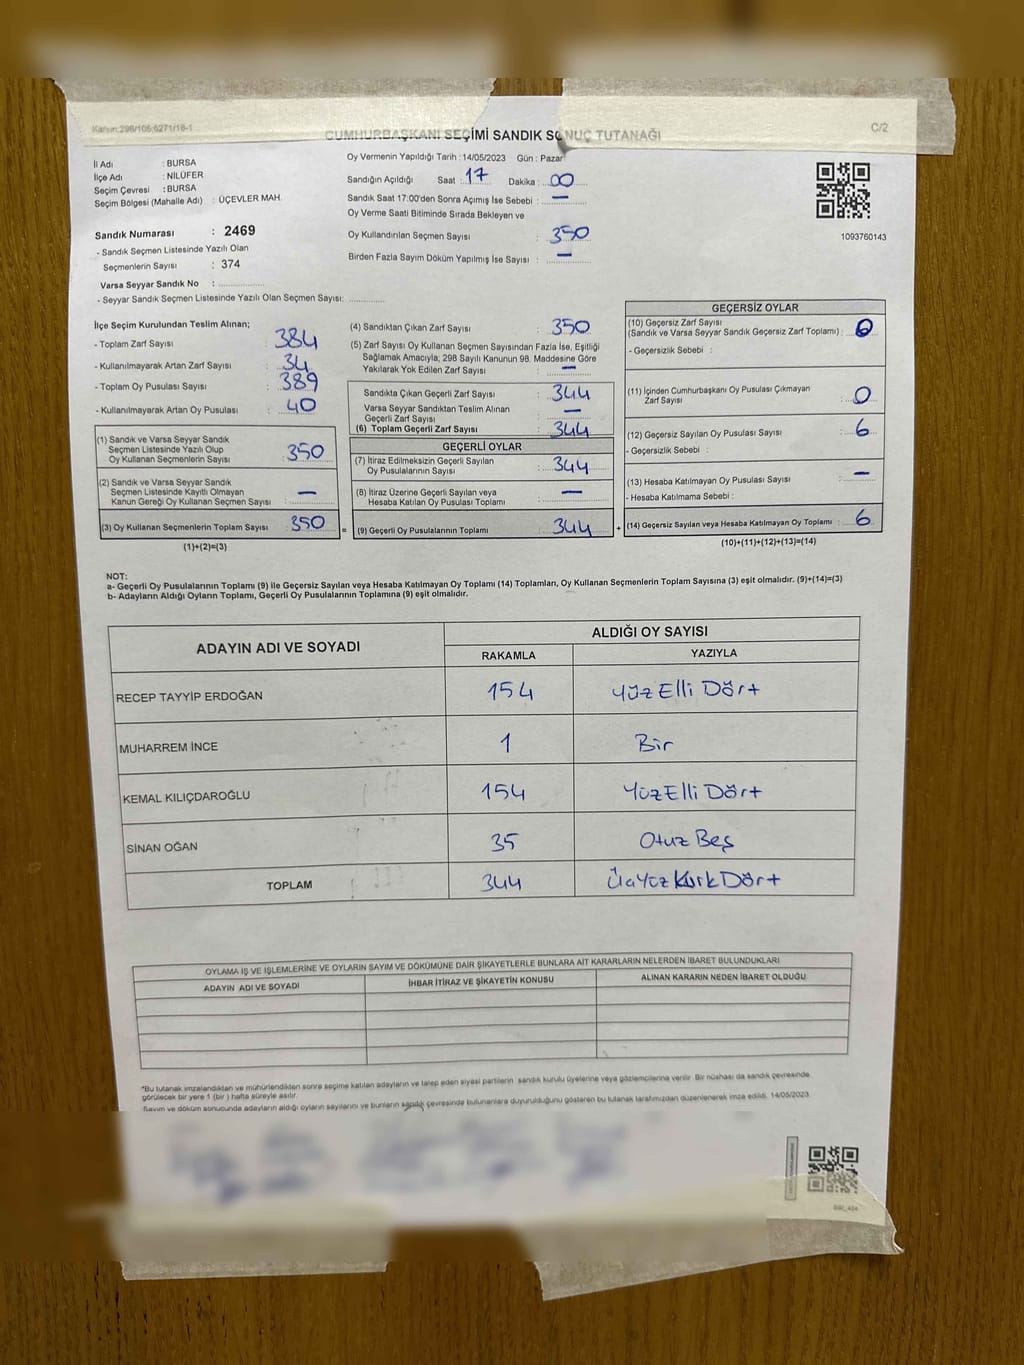 Kanun:298/105;6271/18-1
C/2
CUMHURBAŞKANI SEÇİMİ SANDIK SONUÇ TUTANAĞI
İl Adı : BURSA
İlçe Adı : NİLÜFER
Seçim Çevresi : BURSA
Seçim Bölgesi (Mahalle Adı) : ÜÇEVLER MAH.
Sandık Numarası : 2469
- Sandık Seçmen Listesinde Yazılı Olan
Seçmenlerin Sayısı : 374
Varsa Seyyar Sandık No :
- Seyyar Sandık Seçmen Listesinde Yazılı Olan Seçmen Sayısı:
Oy Vermenin Yapıldığı Tarih : 14/05/2023 Gün : Pazar
Sandığın Açıldığı Saat : 17 Dakika : 00
Sandık Saat 17:00'den Sonra Açımış İse Sebebi : —
Oy Verme Saati Bitiminde Sırada Bekleyen ve
Oy Kullandırılan Seçmen Sayısı : 350
Birden Fazla Sayım Döküm Yapılmış İse Sayısı : —
1093760143
İlçe Seçim Kurulundan Teslim Alınan;
- Toplam Zarf Sayısı : 384
- Kullanılmayarak Artan Zarf Sayısı : 34
- Toplam Oy Pusulası Sayısı : 389
- Kullanılmayarak Artan Oy Pusulası : 40
(1) Sandık ve Varsa Seyyar Sandık
Seçmen Listesinde Yazılı Olup
Oy Kullanan Seçmenlerin Sayısı : 350
(2) Sandık ve Varsa Seyyar Sandık
Seçmen Listesinde Kayıtlı Olmayan
Kanun Gereği Oy Kullanan Seçmen Sayısı : —
(3) Oy Kullanan Seçmenlerin Toplam Sayısı : 350
(1)+(2)=(3)
=
(4) Sandıktan Çıkan Zarf Sayısı : 350
(5) Zarf Sayısı Oy Kullanan Seçmen Sayısından Fazla İse, Eşitliği
Sağlamak Amacıyla; 298 Sayılı Kanunun 98. Maddesine Göre
Yakılarak Yok Edilen Zarf Sayısı : —
Sandıkta Çıkan Geçerli Zarf Sayısı : 344
Varsa Seyyar Sandıktan Teslim Alınan
Geçerli Zarf Sayısı : —
(6) Toplam Geçerli Zarf Sayısı : 344
GEÇERLİ OYLAR
(7) İtiraz Edilmeksizin Geçerli Sayılan
Oy Pusulalarının Sayısı : 344
(8) İtiraz Üzerine Geçerli Sayılan veya
Hesaba Katılan Oy Pusulası Toplamı : —
(9) Geçerli Oy Pusulalarının Toplamı : 344
+
GEÇERSİZ OYLAR
(10) Geçersiz Zarf Sayısı
(Sandık ve Varsa Seyyar Sandık Geçersiz Zarf Toplamı) : 0
- Geçersizlik Sebebi :
(11) İçinden Cumhurbaşkanı Oy Pusulası Çıkmayan
Zarf Sayısı : 0
(12) Geçersiz Sayılan Oy Pusulası Sayısı : 6
- Geçersizlik Sebebi :
(13) Hesaba Katılmayan Oy Pusulası Sayısı : —
- Hesaba Katılmama Sebebi :
(14) Geçersiz Sayılan veya Hesaba Katılmayan Oy Toplamı : 6
(10)+(11)+(12)+(13)=(14)
NOT:
a- Geçerli Oy Pusulalarının Toplamı (9) ile Geçersiz Sayılan veya Hesaba Katılmayan Oy Toplamı (14) Toplamları, Oy Kullanan Seçmenlerin Toplam Sayısına (3) eşit olmalıdır. (9)+(14)=(3)
b- Adayların Aldığı Oyların Toplamı, Geçerli Oy Pusulalarının Toplamına (9) eşit olmalıdır.
ADAYIN ADI VE SOYADI ALDIĞI OY SAYISI
RAKAMLA YAZIYLA
RECEP TAYYİP ERDOĞAN 154 Yüz Elli Dört
MUHARREM İNCE 1 Bir
KEMAL KILIÇDAROĞLU 154 Yüz Elli Dört
SİNAN OĞAN 35 Otuz Beş
TOPLAM 344 ÜçYüz Kırk Dört
OYLAMA İŞ VE İŞLEMLERİNE VE OYLARIN SAYIM VE DÖKÜMÜNE DAİR ŞİKAYETLERLE BUNLARA AİT KARARLARIN NELERDEN İBARET BULUNDUKLARI
ADAYIN ADI VE SOYADI İHBAR İTİRAZ VE ŞİKAYETİN KONUSU ALINAN KARARIN NEDEN İBARET OLDUĞU
*Bu tutanak imzalandıktan ve mühürlendikten sonra seçime katılan adayların ve talep eden siyasi partilerin sandık kurulu üyelerine veya gözlemcilerine verilir. Bir nüshası da sandık çevresinde
görülecek bir yere 1 (bir ) hafta süreyle asılır.
Sayım ve döküm sonucunda adayların aldığı oyların sayılarını ve bunların sandık çevresinde bulunanlara duyurulduğunu gösteren bu tutanak tarafımızdan düzenlenerek imza edildi. 14/05/2023